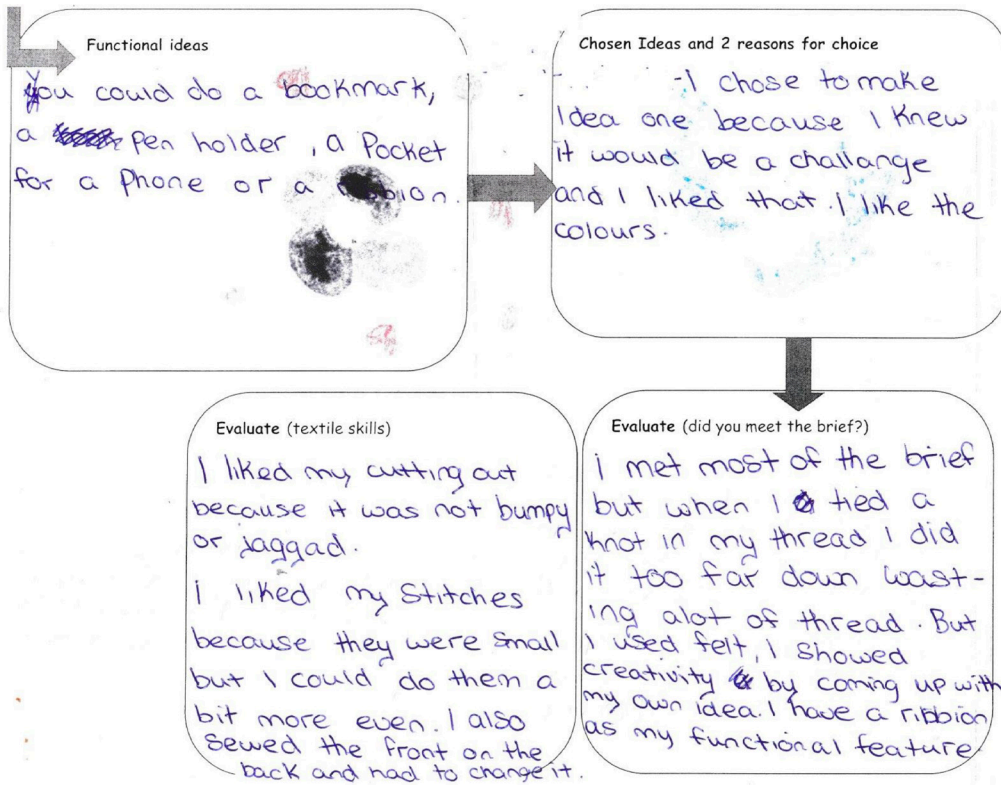 Functional ideas
You could do a bookmark,
a pen holder, a Pocket
for a Phone or a
Chosen Ideas and 2 reasons for choice
-I chose to make
Idea one because I knew
it would be a challange
and I liked that. I like the
colours.
Evaluate (textile skills)
I liked my cutting out
because it was not bumpy
or jaggad.
i liked my Stitches
because they were small
but I could do them a
bit more even. I also
sewed the front on the
back and had to change it.
Evaluate (did you meet the brief?)
i met most of the brief
but when I tied a
knot in my thread I did
it too far down wast-
ing alot of thread. But
I used felt, I showed
creativity by coming up with
my own idea. I have a ribbion
as my functional feature